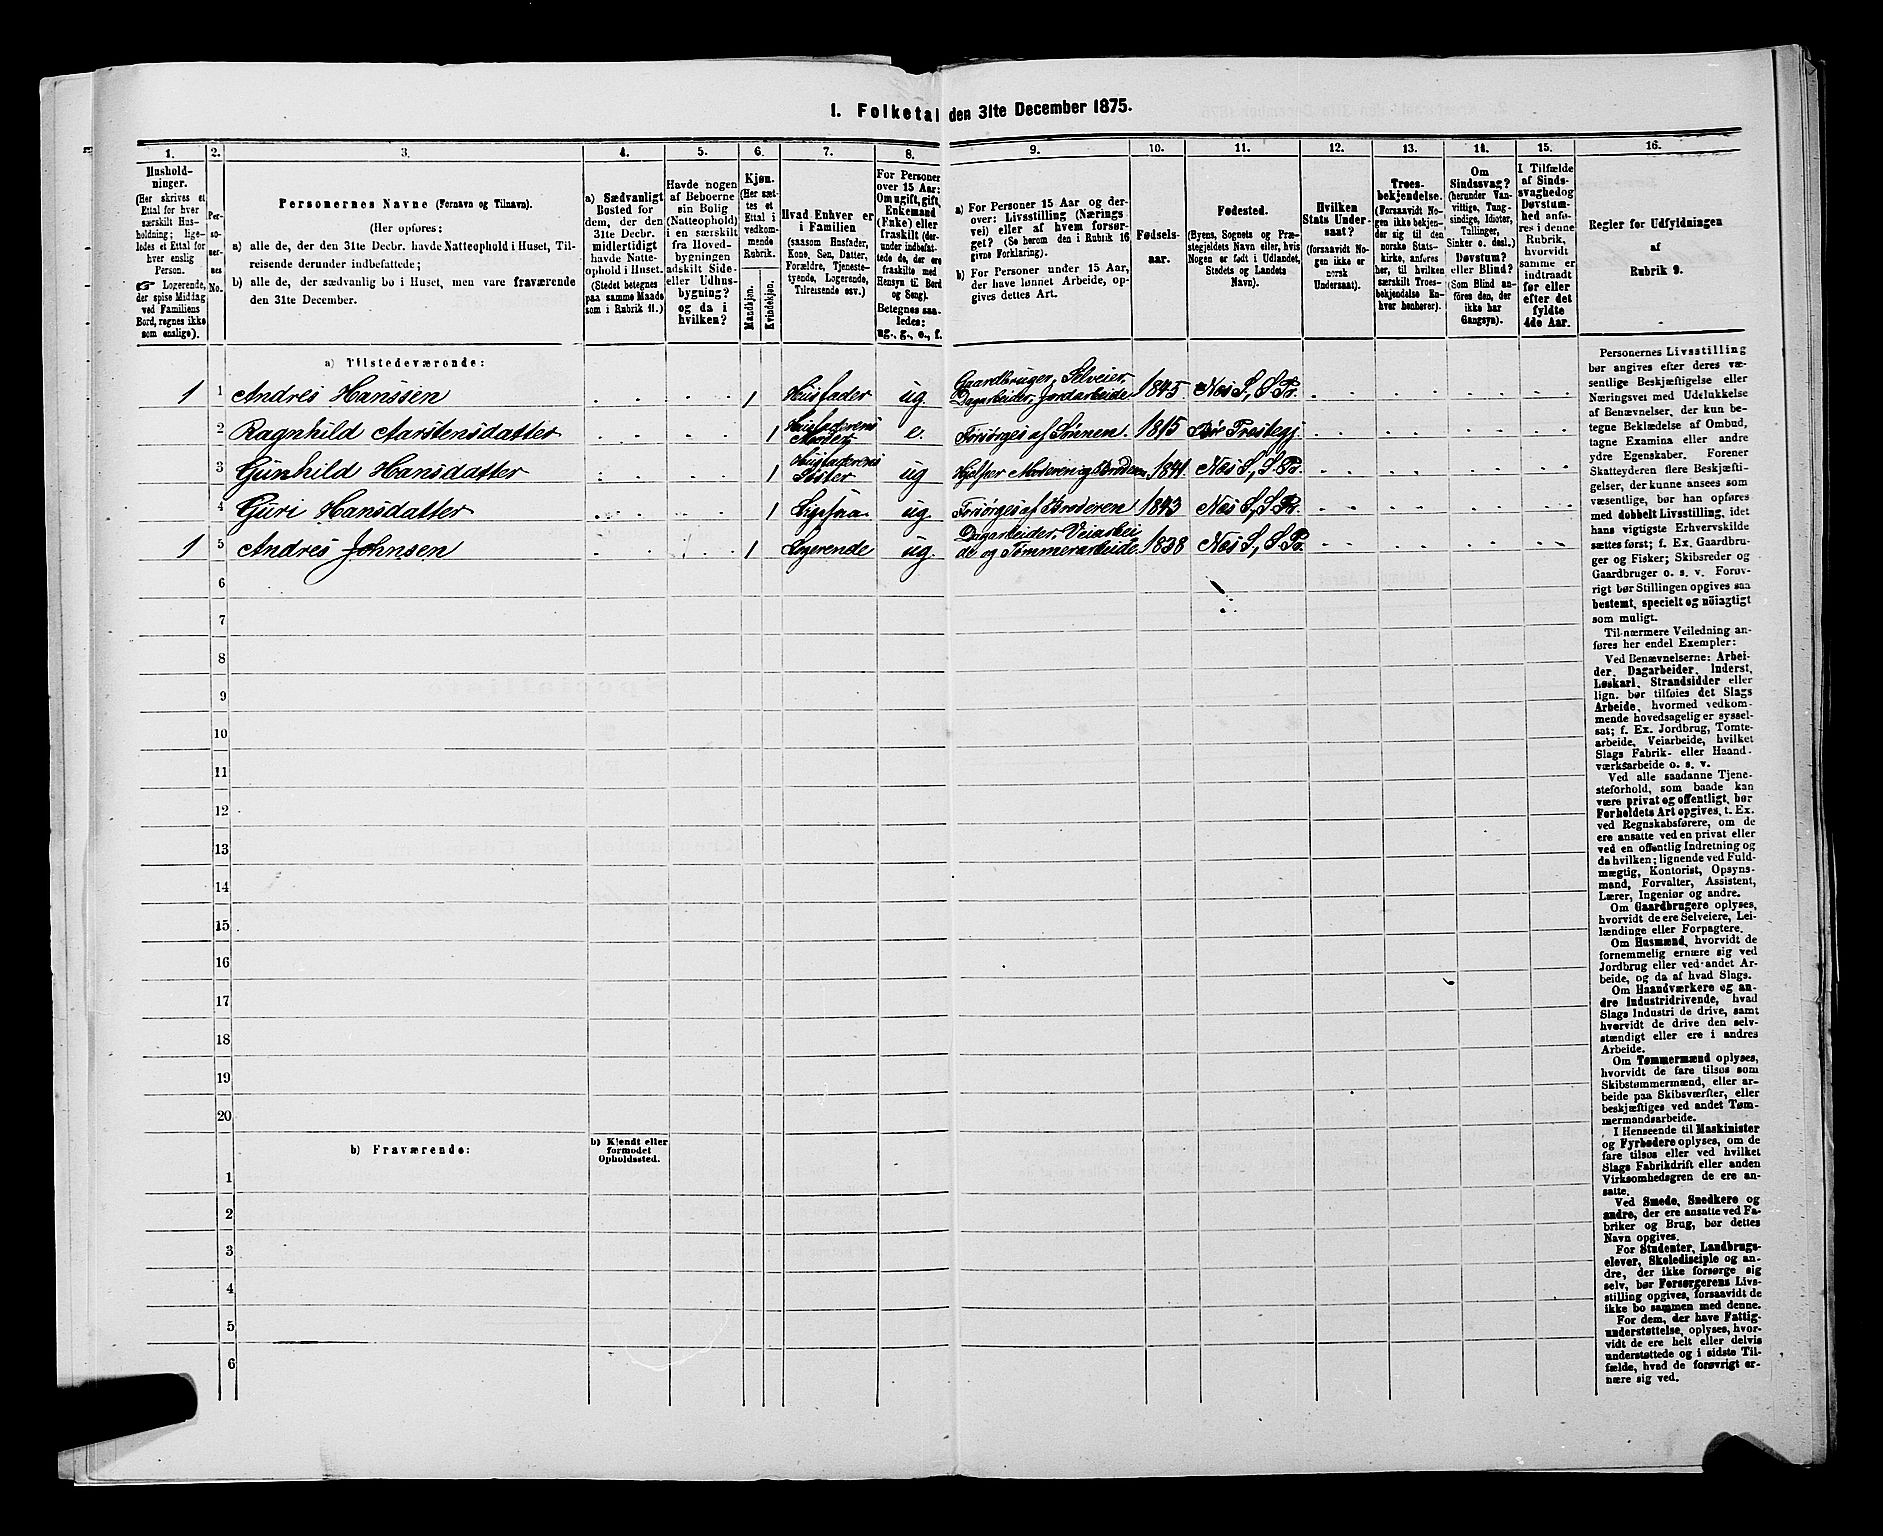 1. Folketal den 31te December 1875.
1.
Hushold-
ninger.
(Her skrives et
Ettal for hver
særskilt Hus-
holdning; lige-
ledes et Ettal for
hver enslig
Person.
Logerende,
der spise Middag
ved Familiens
Bord, regnes ikke
som enslige).
2.
Per-
so-
ner-
nes
No.
3.
Personernes Navne (Fornavn og Tilnavn).
(Her opføres:
a) alle de, der den 31te Decbr. havde Natteophold i Huset, Til-
reisende derunder indbefattede;
b) alle de, der sædvanlig bo i Huset, men vare fraværende
den 31te December.
4.
a) Sædvanligt
Bosted for
dem, der den
31te Decbr.
midlertidigt
havde Natte-
ophold i Huset.
(Stedet betegnes
paa samme Maade
som i Rubrik 11.)
5.
Havde nogen
af Beboerne
sin Bolig
(Natteophold)
i en særskilt
fra Hoved-
bygningen
adskilt Side-
eller Udhus-
bygning?
og da i
hvilken?
6.
Kjøn.
(Her sæt-
tes et
Ettal i
vedkom-
mende
Rubrik.
Mandkjøn.
Kvindekjøn.
7.
Hvad Enhver er
i Familien
(saasom Husfader,
Kone, Søn, Datter,
Forældre, Tjeneste-
tyende, Logerende,
Tilreisende osv.)
8.
For Personer
over 15 Aar:
Om ugift, gift,
Enkemand
(Enke) eller
fraskilt (der-
under indbefat-
tede de, der ere
fraskilte med
Hensyn til Bord
og Seng).
Betegnes saa-
ledes:
ug., g., e., f.
9.
a) For Personer 15 Aar og der-
over: Livsstilling (Nærings-
vei) eller af hvem forsør-
get? (Se herom den i Rubrik 16
givne Forklaring).
b) For Personer under 15 Aar,
der have lønnet Arbeide, op-
gives dettes Art.
10.
Fødsels-
aar.
11.
Fødested.
(Byens, Sognets og Præ-
stegjeldets Navn eller, hvis
Nogen er født i Udlandet,
Stedets og Landets
Navn).
12.
Hvilken
Stats Under-
saat?
(forsaavidt No-
gen ikke er
norsk
Undersaat).
13.
Troes-
bekjendelse.
(Forsaavidt No-
gen ikke bekjen-
der sig til den
norske Stats-
kirke, anføres
her, til hvilken
særskilt Troes-
bekjendelse En-
hver henhører).
14.
Om
Sindssvag?
(herunder Van-
vittige, Tung-
sindige, Idioter,
Tullinger,
Sinker o. desl.)
Døvstum?
eller Blind?
(Som Blind an-
føres den, der
ikke har
Gangsyn).
15.
I Tilfælde
af Sinds-
svaghed og
Døvstum-
hed anfø-
res i denne
Rubrik,
hvorvidt
samme er
indtraadt
før eller
efter det
fyldte
4de Aar.
16.
Regler for Udfyldningen
af
Rubrik 9.
a) Tilstedeværende:
1 1 Andres Hanssen 1 Husfader ug Gaardbruger, Selveier, Dagarbeider, Jordarbeide 1845 Næs S, S Pr.
2 Ragnhild Aarstensdatter 1 Husfaderens Moder e. Forsørges af Sønnen. 1815 Bø Prestegj.
3 Gunhild Hansdatter 1 Husfaderens Søster ug Hjelper Moderen og Broderen 1841 Næs S, S Pr.
4 Guri Hansdatter 1 Ligesaa ug Forsørges af Broderen 1843 Næs S, S Pr.
1 5 Andres Johnsen 1 Logerende ug Dagarbeider, Veiarbei de og Tømmerarbeide 1838 Næs S, S Pr.
6
7
8
9
10
11
12
13
14
15
16
17
18
19
20
b) Fraværende:
b) Kjendt eller
formodet
Opholdssted.
1
2
3
4
5
6
Personernes Livsstilling
bør angives efter deres væ-
sentlige Beskjæftigelse eller
Næringsvei med Udelukkelse
af Benævnelser, der kun be-
tegne Beklædelse af Ombud,
tagne Examina eller andre
ydre Egenskaber. Forener
Skatteyderen flere Beskjæfti-
gelser, der kunne ansees som
væsentlige, bør han opføres
med dobbelt Livsstilling, idet
hans vigtigste Erhvervskilde
sættes først; f. Ex. Gaardbru-
ger og Fisker; Skibsreder og
Gaardbruger o. s. v. Forøv-
rigt bør Stillingen opgives saa
bestemt, specielt og nöiagtigt
som muligt.
Til nærmere Veiledning an-
føres her endel Exempler:
Ved Benævnelserne: Arbei-
der, Dagarbeider, Inderst,
Løskarl, Strandsidder eller
lign. bør tilføies det Slags
Arbeide, hvormed vedkom-
mende hovedsagelig er syssel-
sat; f. Ex. Jordbrug, Tomte-
arbeide, Veiarbeide, hvilket
Slags Fabrik- eller Haand-
værksarbeide o. s. v.
Ved alle saadanne Tjene-
steforhold, som baade kan
være privat og offentligt, bør
Forholdets Art opgives, t. Ex.
ved Regnskabsførere, om de
ere ansatte ved en privat eller
ved en offentlig Indretning og
da hvilken; lignende ved Fuld-
mægtig, Kontorist, Opsyns-
mand, Forvalter, Assistent,
Lærer, Ingeniør og andre.
Om Gaardbrugere oplyses,
hvorvidt de ere Selveiere, Lei-
lændinge eller Forpagtere.
Om Husmænd, hvorvidt de
fornemmelig ernære sig ved
Jordbrug eller ved andet Ar-
beide, og da af hvad Slags.
Om Haandværkere og an-
dre Industridrivende, hvad
Slags Industri de drive, samt
hvorvidt de drive den selv-
stændigt eller ere i andres
Arbeide.
Om Tømmermænd oplyses,
hvorvidt de fare tilsøs som
Skibstømmermænd, eller ar-
beide paa Skibsværfter, eller
beskjæftiges ved andet Tøm-
mermandsarbeide.
I Henseende til Maskinister
og Fyrbødere oplyses, om de
fare tilsøs eller ved hvilket
Slags Fabrikdrift eller anden
Virksomhedsgren de ere an-
satte.
Ved Smede, Snedkere og
andre, der ere ansatte ved Fa-
briker og Brug, bør dettes
Navn opgives.
For Studenter, Landbrugs-
elever, Skoledisciple og an-
dre, der ikke forsørge sig
selv, bør Forsørgerens Livs-
stilling opgives, forsaavidt de
ikke bo sammen med denne.
For dem, der have Fattig-
understøttelse, oplyses, hvor-
vidt de ere helt eller delvis
understøttede og i sidste Til-
fælde, hvad de forøvrigt er-
nære sig ved.